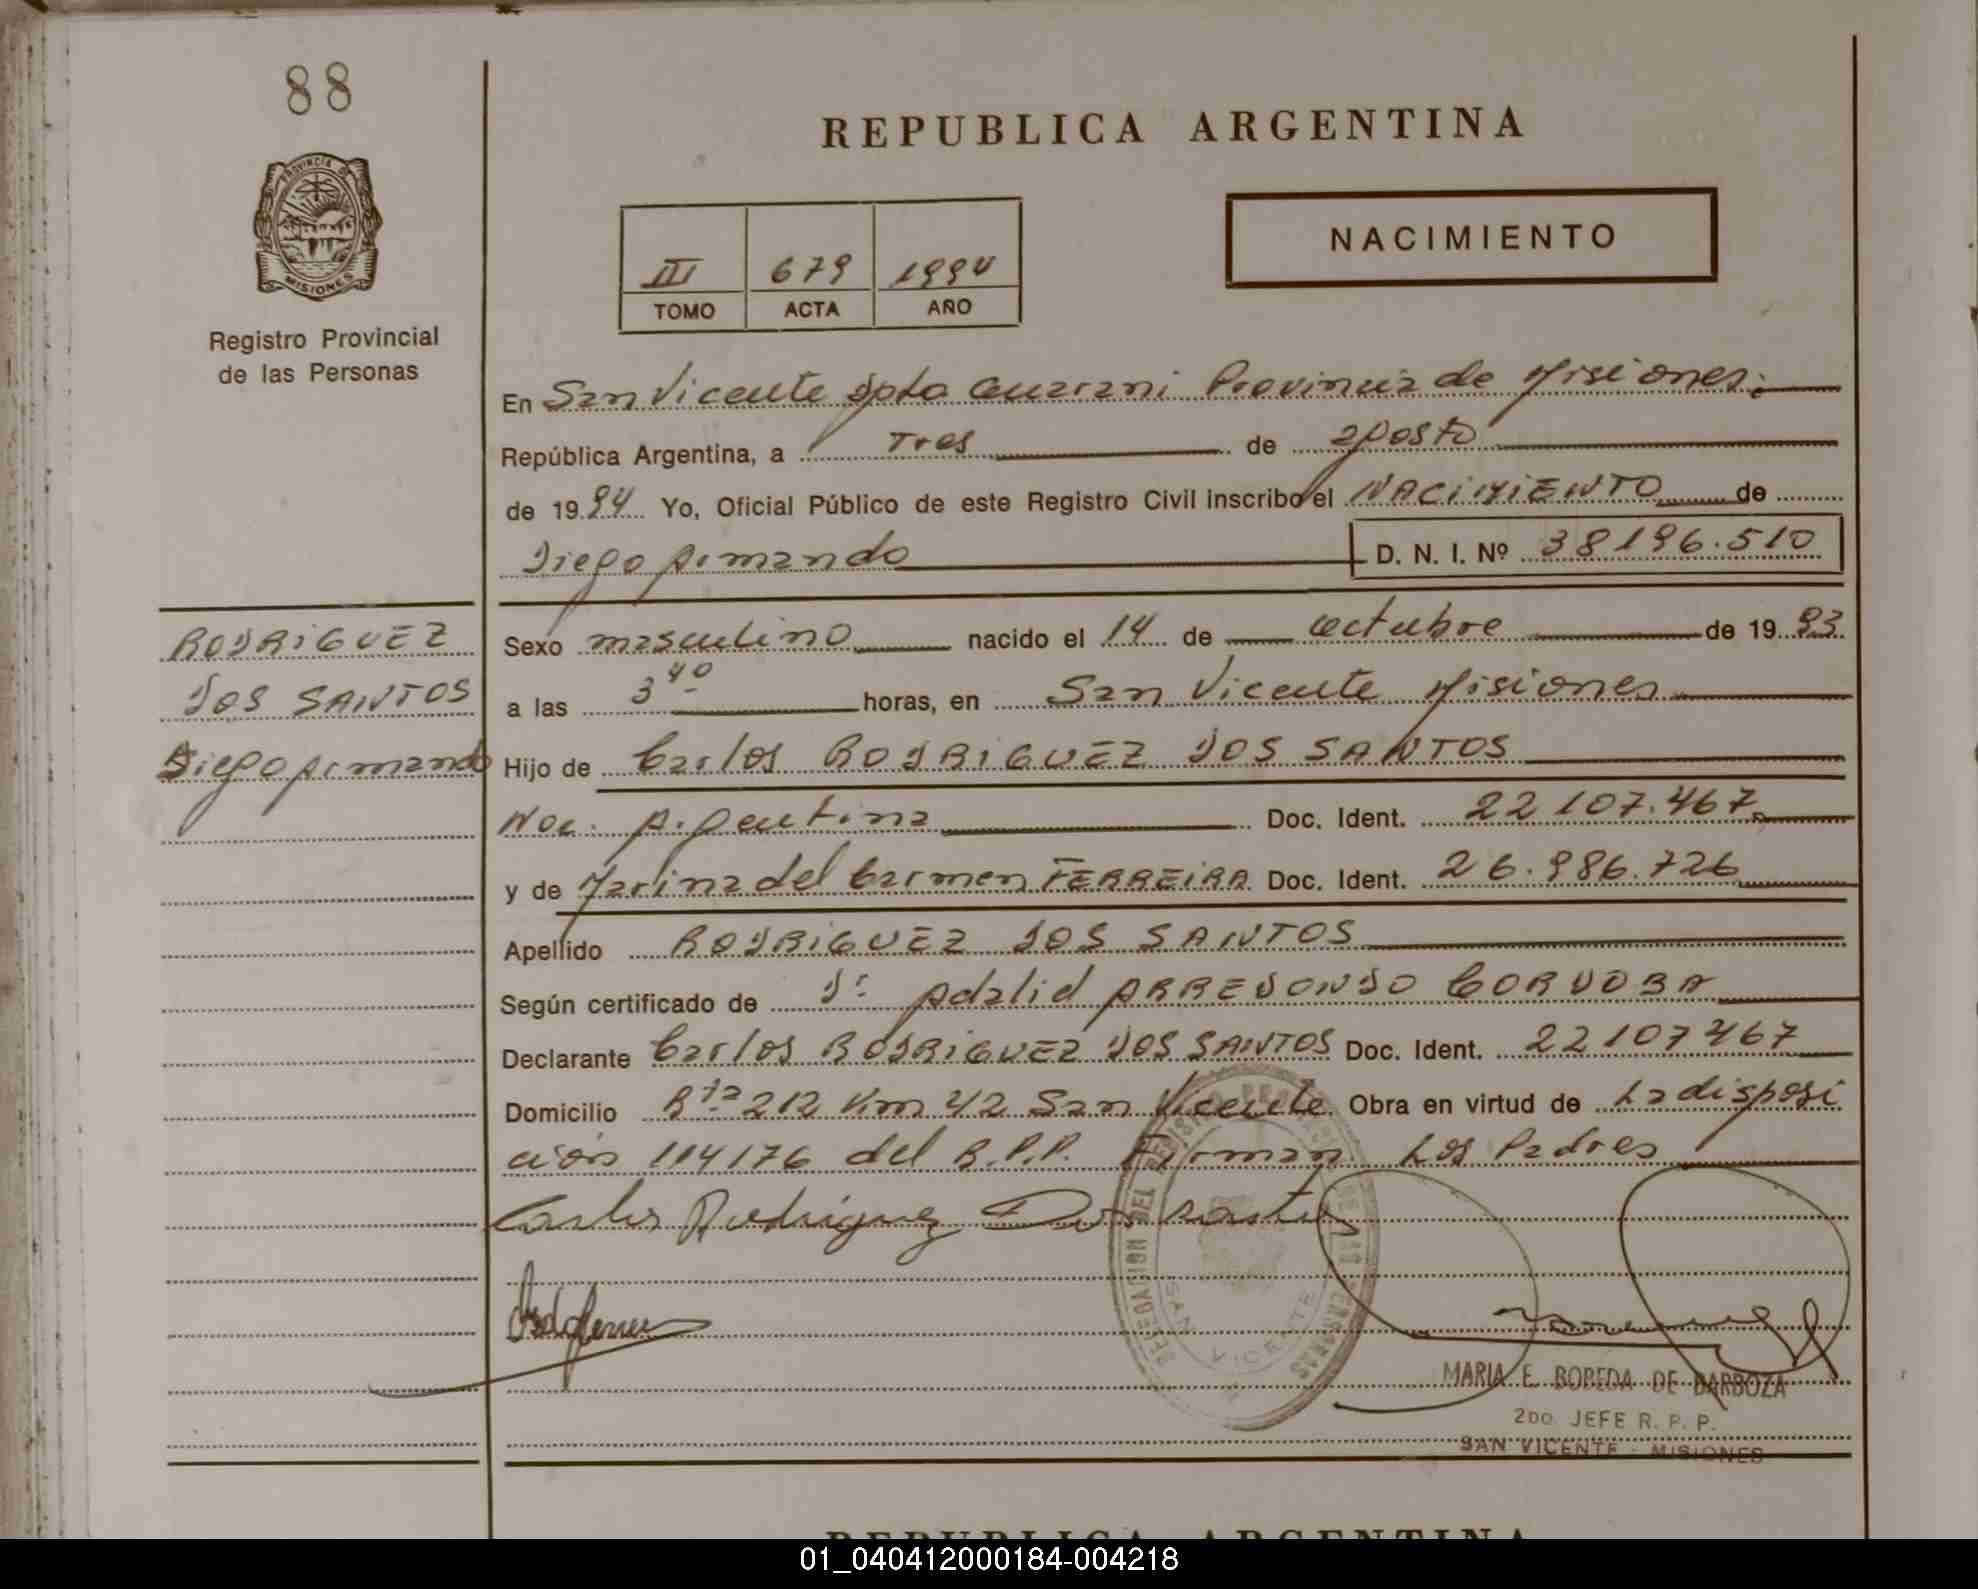 88
PROVINCIA DE
MISIONES
Registro Provincial
de las Personas
REPUBLICA ARGENTINA
NACIMIENTO
III 679 1994
TOMO ACTA AÑO
En San Vicente Dpto Guarani Provincia de Misiones.
República Argentina, a Tres de agosto
de 1994 Yo, Oficial Público de este Registro Civil inscribo el NACIMIENTO de
Diego Armando D. N. I. Nº 38196.510
RODRIGUEZ
DOS SANTOS
Diego Armando
Sexo masculino nacido el 14 de octubre de 1993
a las 3 40 horas, en San Vicente Misiones
Hijo de Carlos RODRIGUEZ DOS SANTOS
Nac. Argentina Doc. Ident. 22107.467
y de Marina del Carmen FERREIRA Doc. Ident. 26.986.726
Apellido RODRIGUEZ DOS SANTOS
Según certificado de Dr. Adalid ARREDONDO CORDOBA
Declarante Carlos RODRIGUEZ DOS SANTOS Doc. Ident. 22107467
Domicilio Rta 212 Km 42 San Vicente Obra en virtud de La disposi
ción 114176 del R.P.P. Firman Los Padres
Carlos Rodriguez Dos Santos
DELEGACION DEL REGISTRO DE LAS PERSONAS
SAN VICENTE
MARIA E. BOPEDA DE BARBOZA
2DO. JEFE R. P. P.
SAN VICENTE - MISIONES
REPUBLICA ARGENTINA
01_040412000184-004218